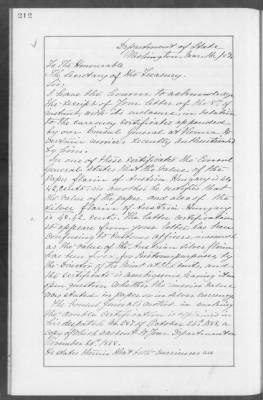 212
Department of State
Washington, Mar. 14,
To The Honorable
The Secretary of the Treasury.
Sir,
I have the honor to acknowledge
the receipt of your letter of the 8th of
instant, and its inclosures, in relation
to the currency certificates appended
by our Consul General at Vienna to
certain invoices recently authenticated
by him.
In one of these certificates the Consul
General states that the value of the
paper florin of Austria Hungary is
42, cents; in another he certifies that
the value of the paper and also of the
silver florin of Austria Hungary
is 40.42 cents. The latter certification
it appears from your letter has been
confusing to customs officers, inasmuch
as the value of the Austrian silver florin
has been fixed, for customs purposes, by
the Director of the Mint at the cents, and
the certificate is ambiguous leaving it an
open question whether the invoice value
was stated in paper or in silver currency.
The Consul General's method in making
the double certification is explained in
his despatch No. 208 of October 25th, 1888, a
copy of which was sent to your Department on
November 20th, 1888.
He states therein that both currencies are